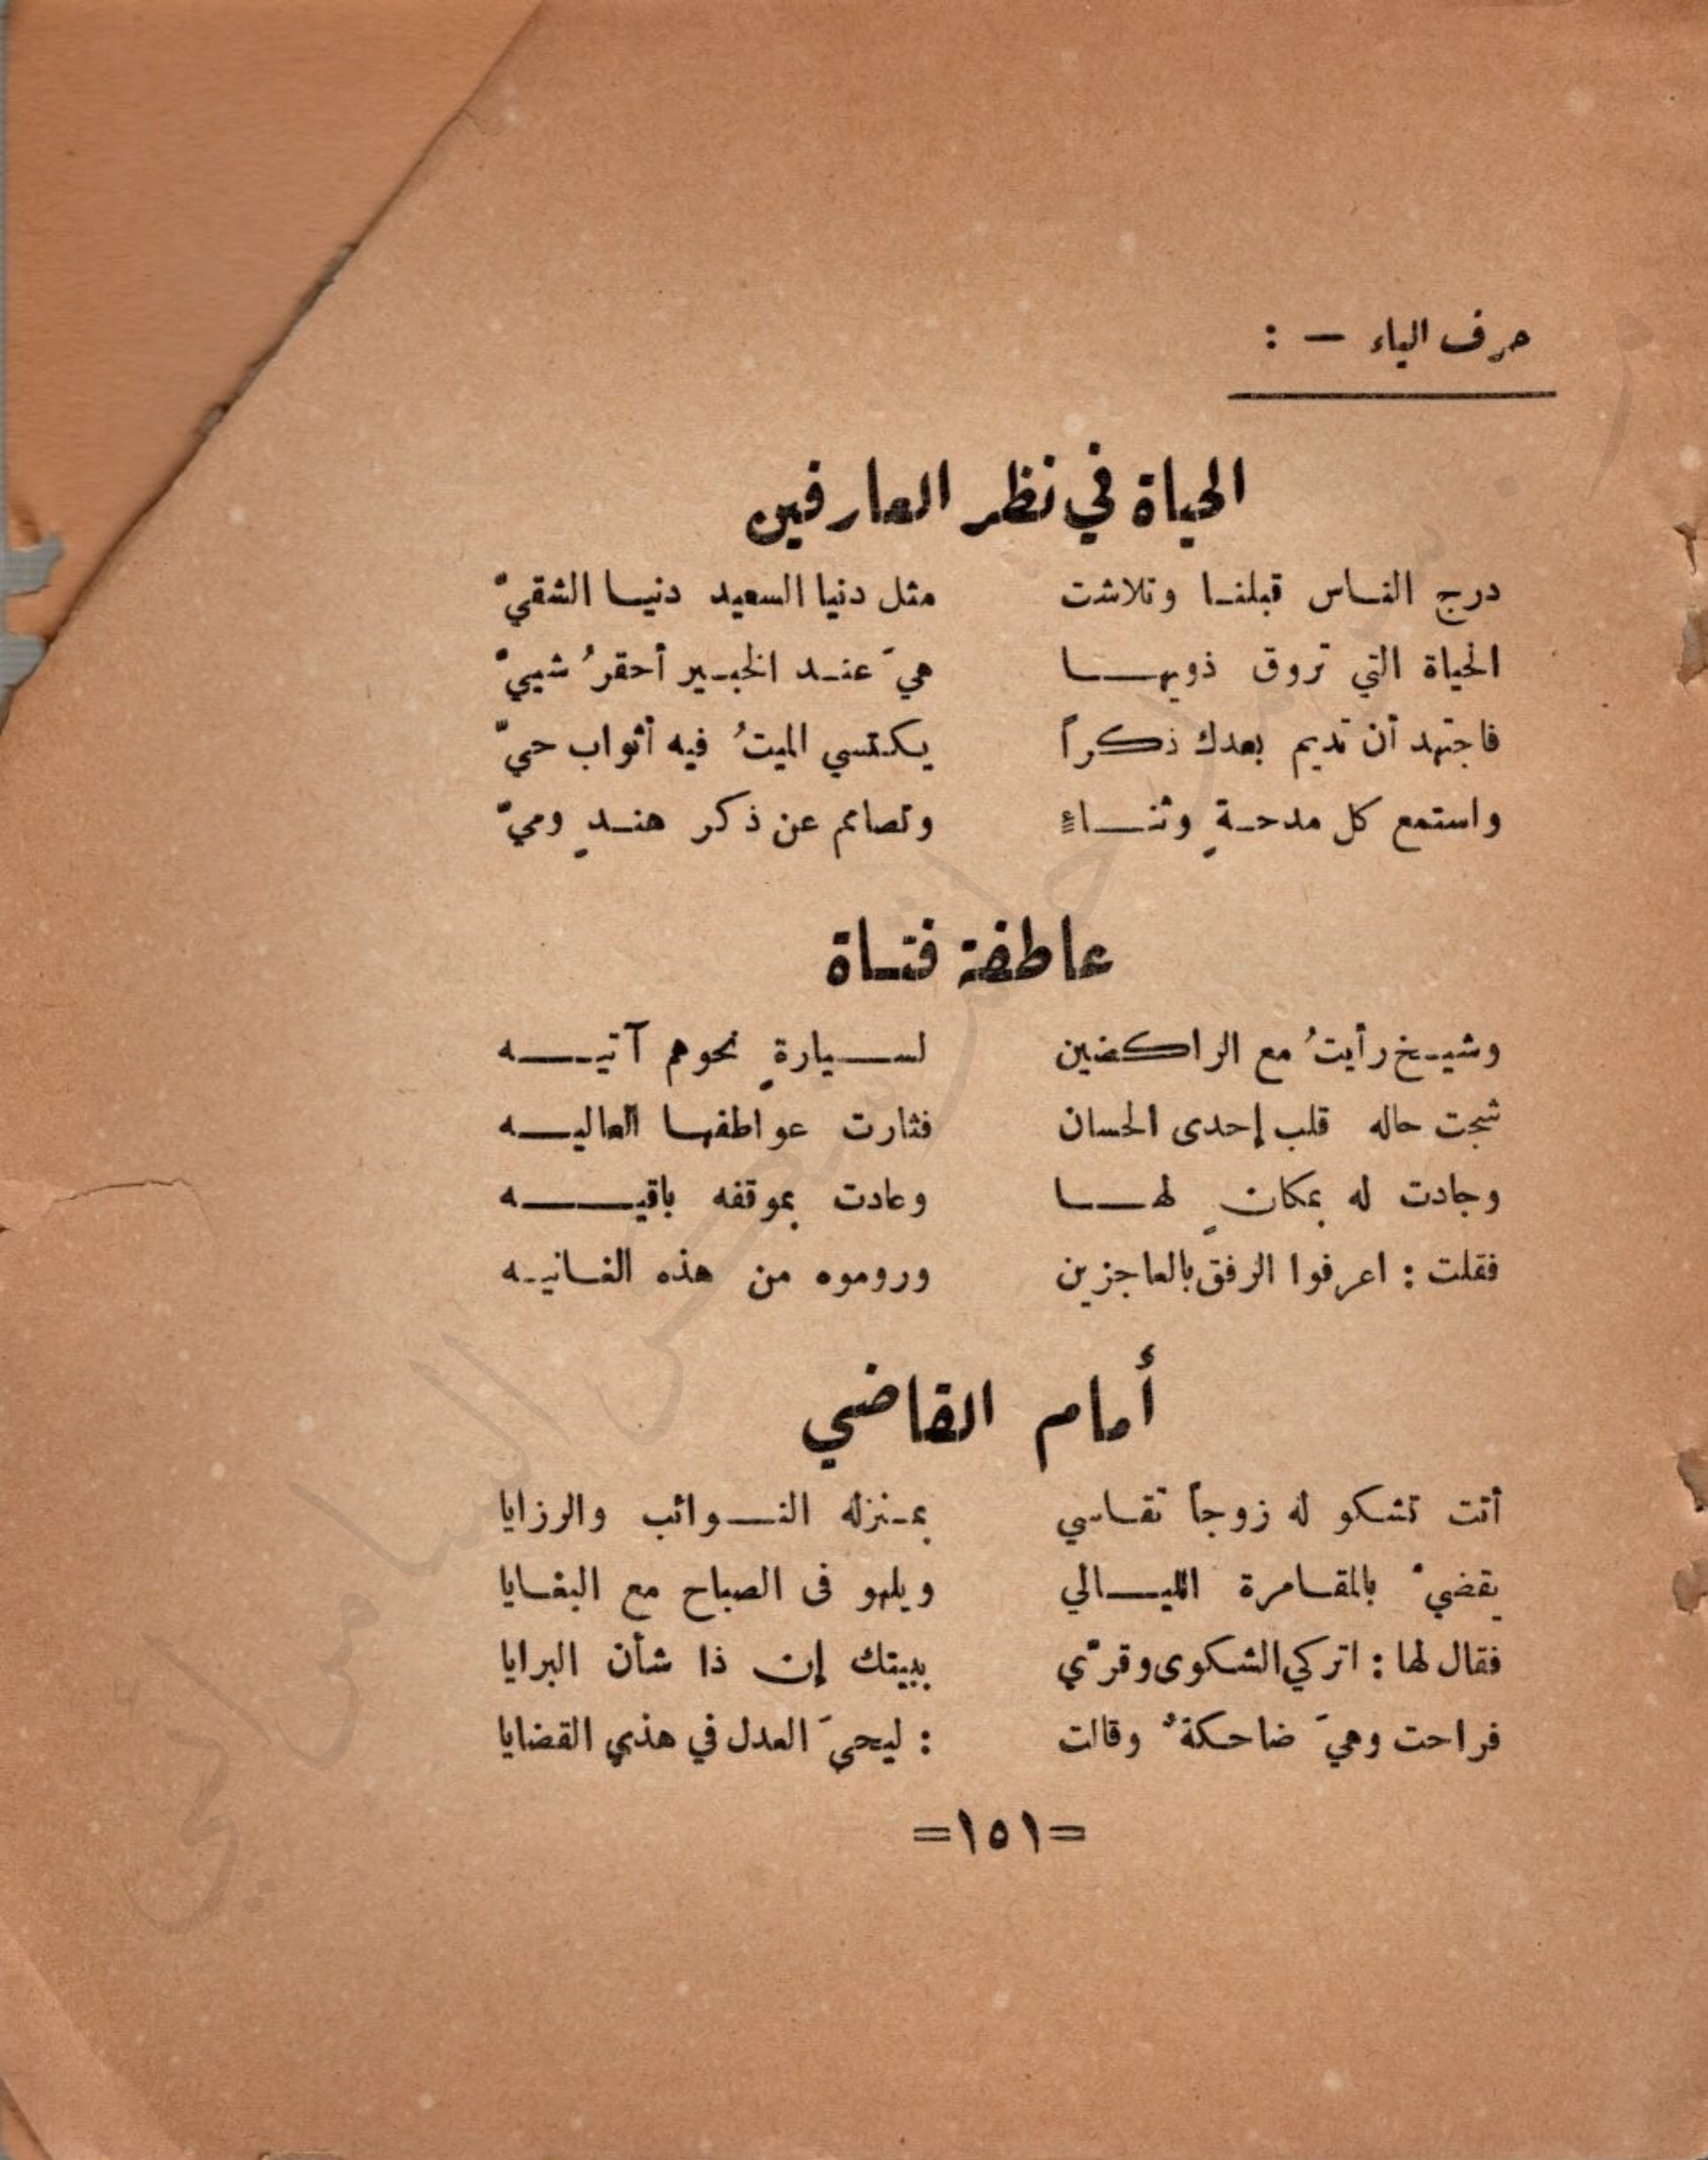 حرف الياء — :
الحياة في نظر العارفين
درج الناس قبلنا وتلاشت مثل دنيا السعيد دنيا الشقيّ
الحياة التي تروق ذويها هيَ عند الخبير أحقرُ شييّ
فاجتهد أن تديم بعدك ذكراً يكتسي الميتُ فيه أثواب حيّ
واستمع كل مدحةٍ وثناءٍ وتصامم عن ذكر هندٍ وميّ
عاطفة فتاة
وشيخ رأيتُ مع الراكضين لسيارةٍ نحوهم آتيه
شجت حاله قلب إحدى الحسان فثارت عواطفها العاليه
وجادت له بمكانٍ لها وعادت بموقفه باقيه
فقلت : اعرفوا الرفق بالعاجزين وروموه من هذه الغانيه
أمام القاضي
أتت تشكو له زوجاً تقاسي بمنزله النوائب والرزايا
يقضيّ بالمقامرة الليالي ويلهو فى الصباح مع البغايا
فقال لها : اتركي الشكوى وقرّي ببيتك إن ذا شأن البرايا
فراحت وهيَ ضاحكةٌ وقالت : ليحيَ العدل في هذي القضايا
=١٥١=